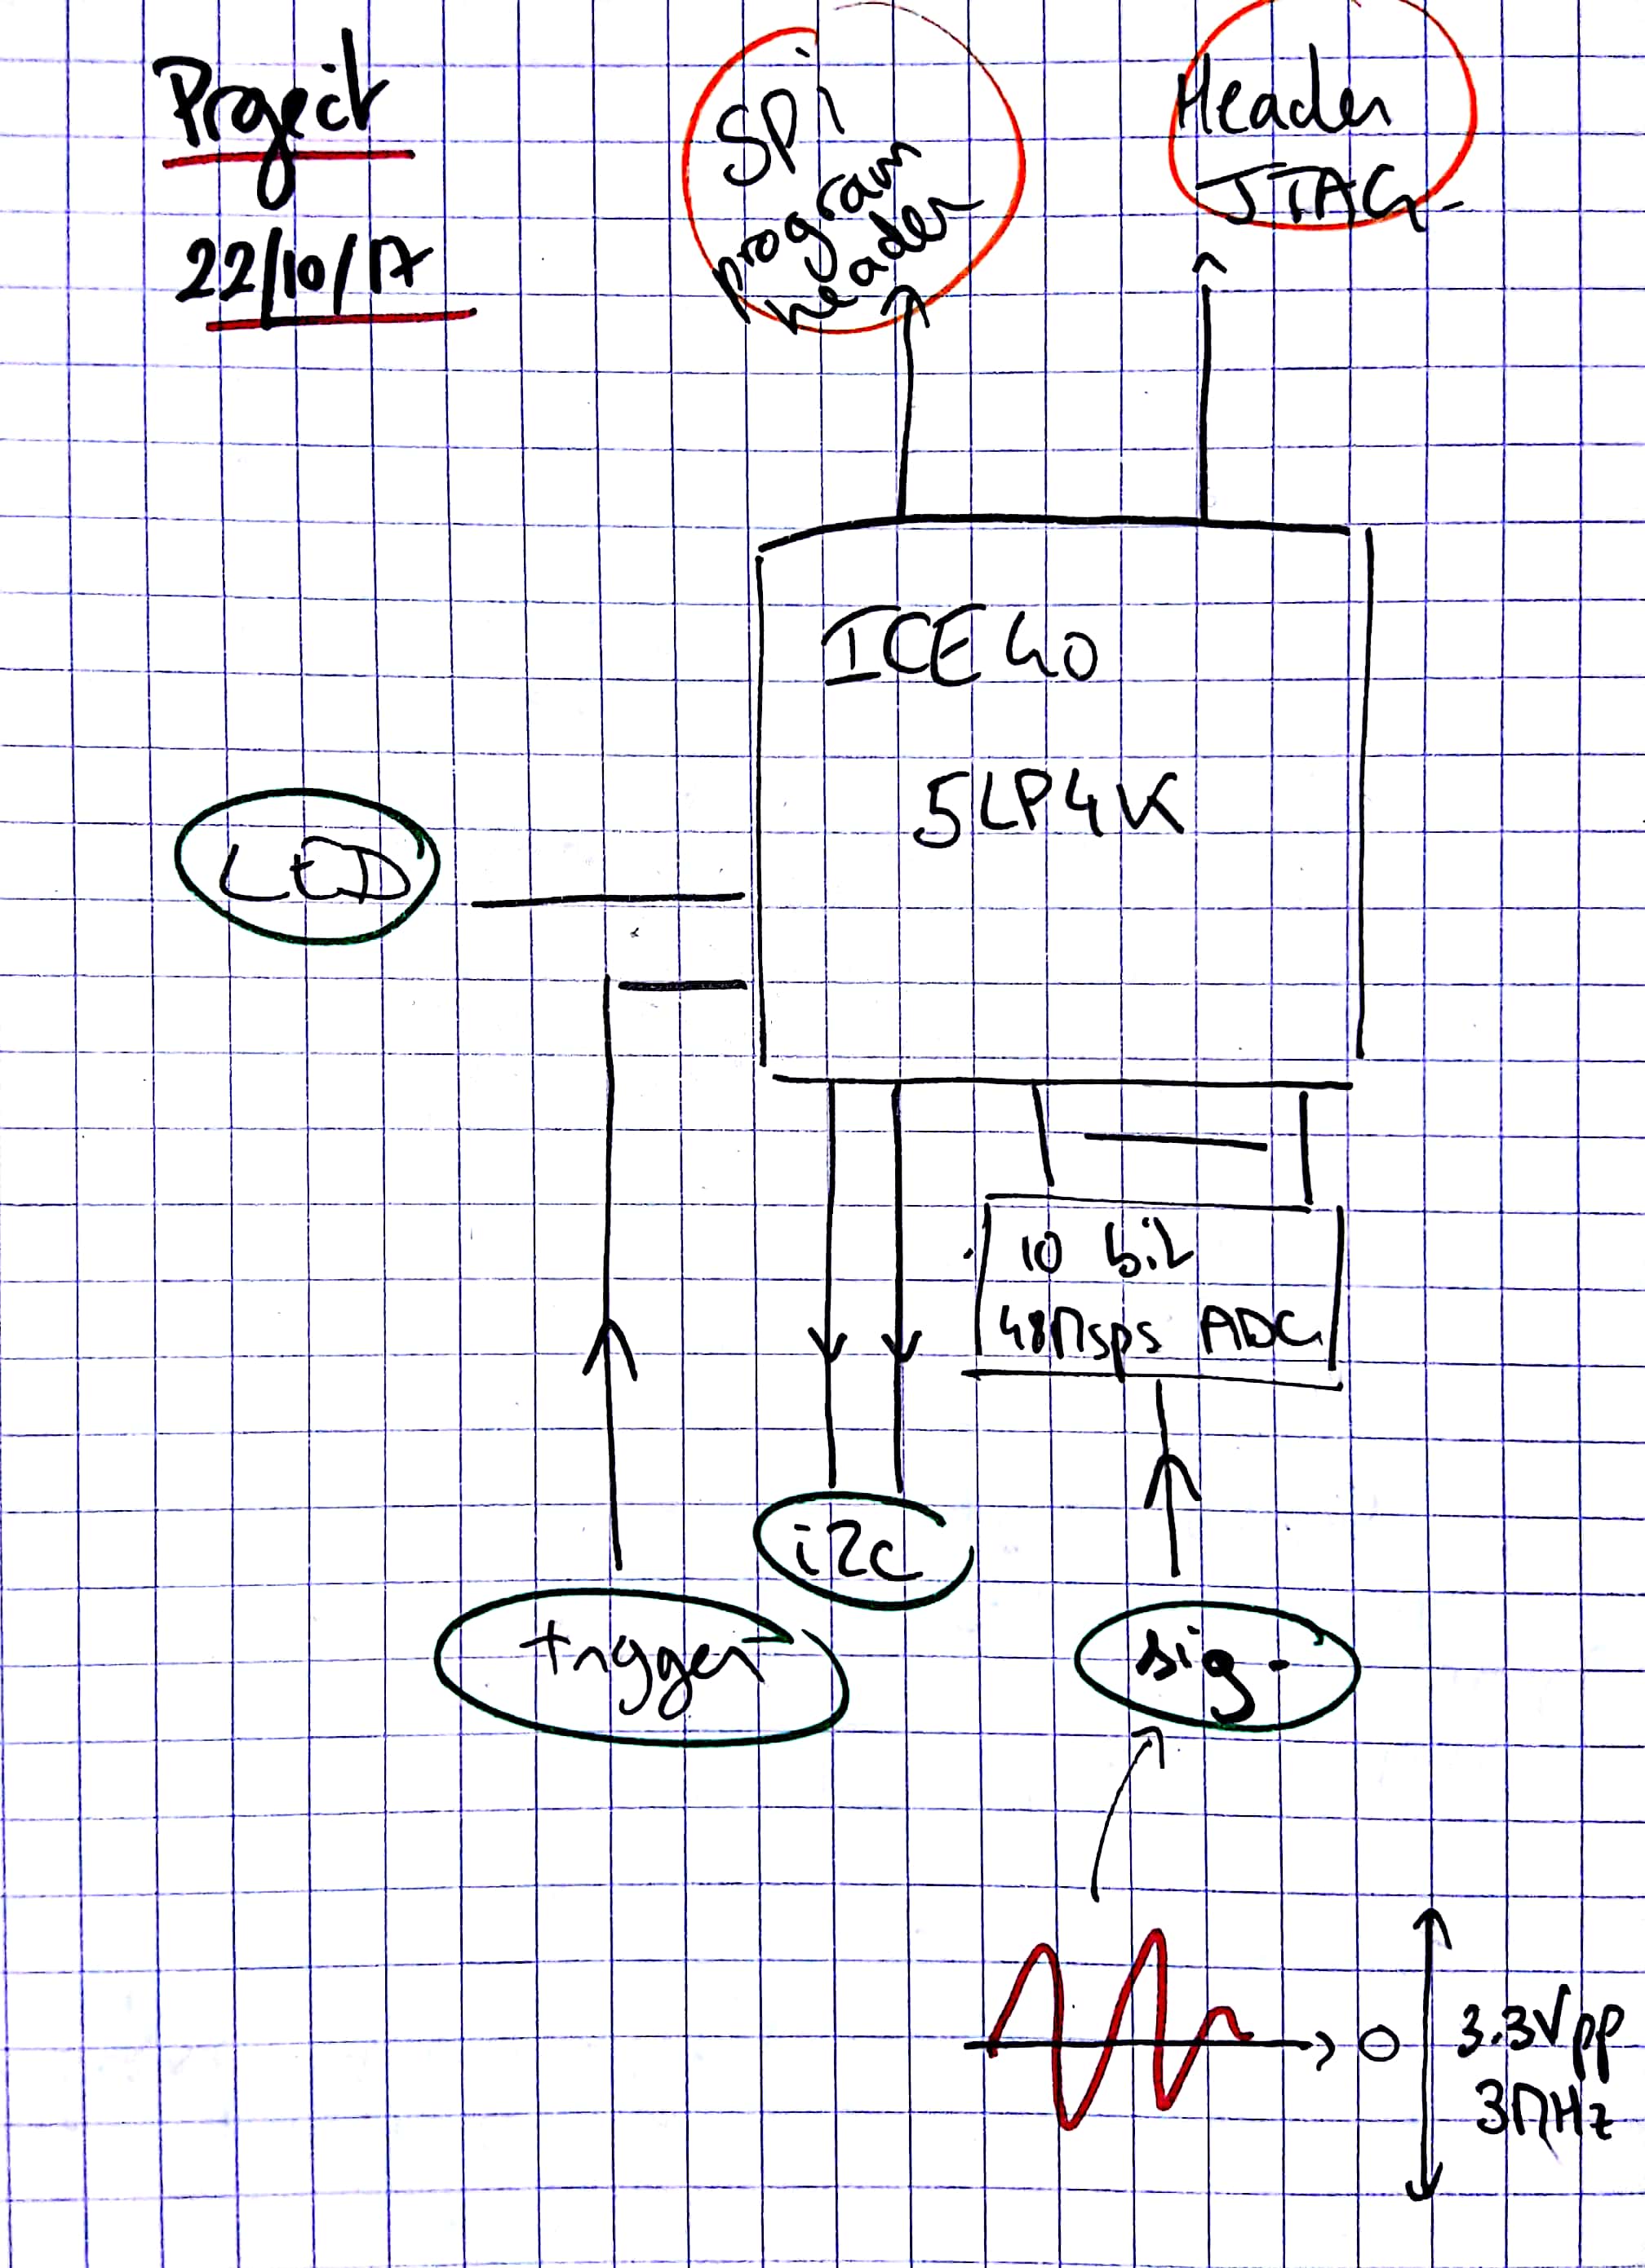 Project
22/10/17
SPi
program
header
Header
JTAG
ICE40
5LP4K
LED
10 bit
48Msps ADC
i2c
trigger
sig-
3.3Vpp
3MHz